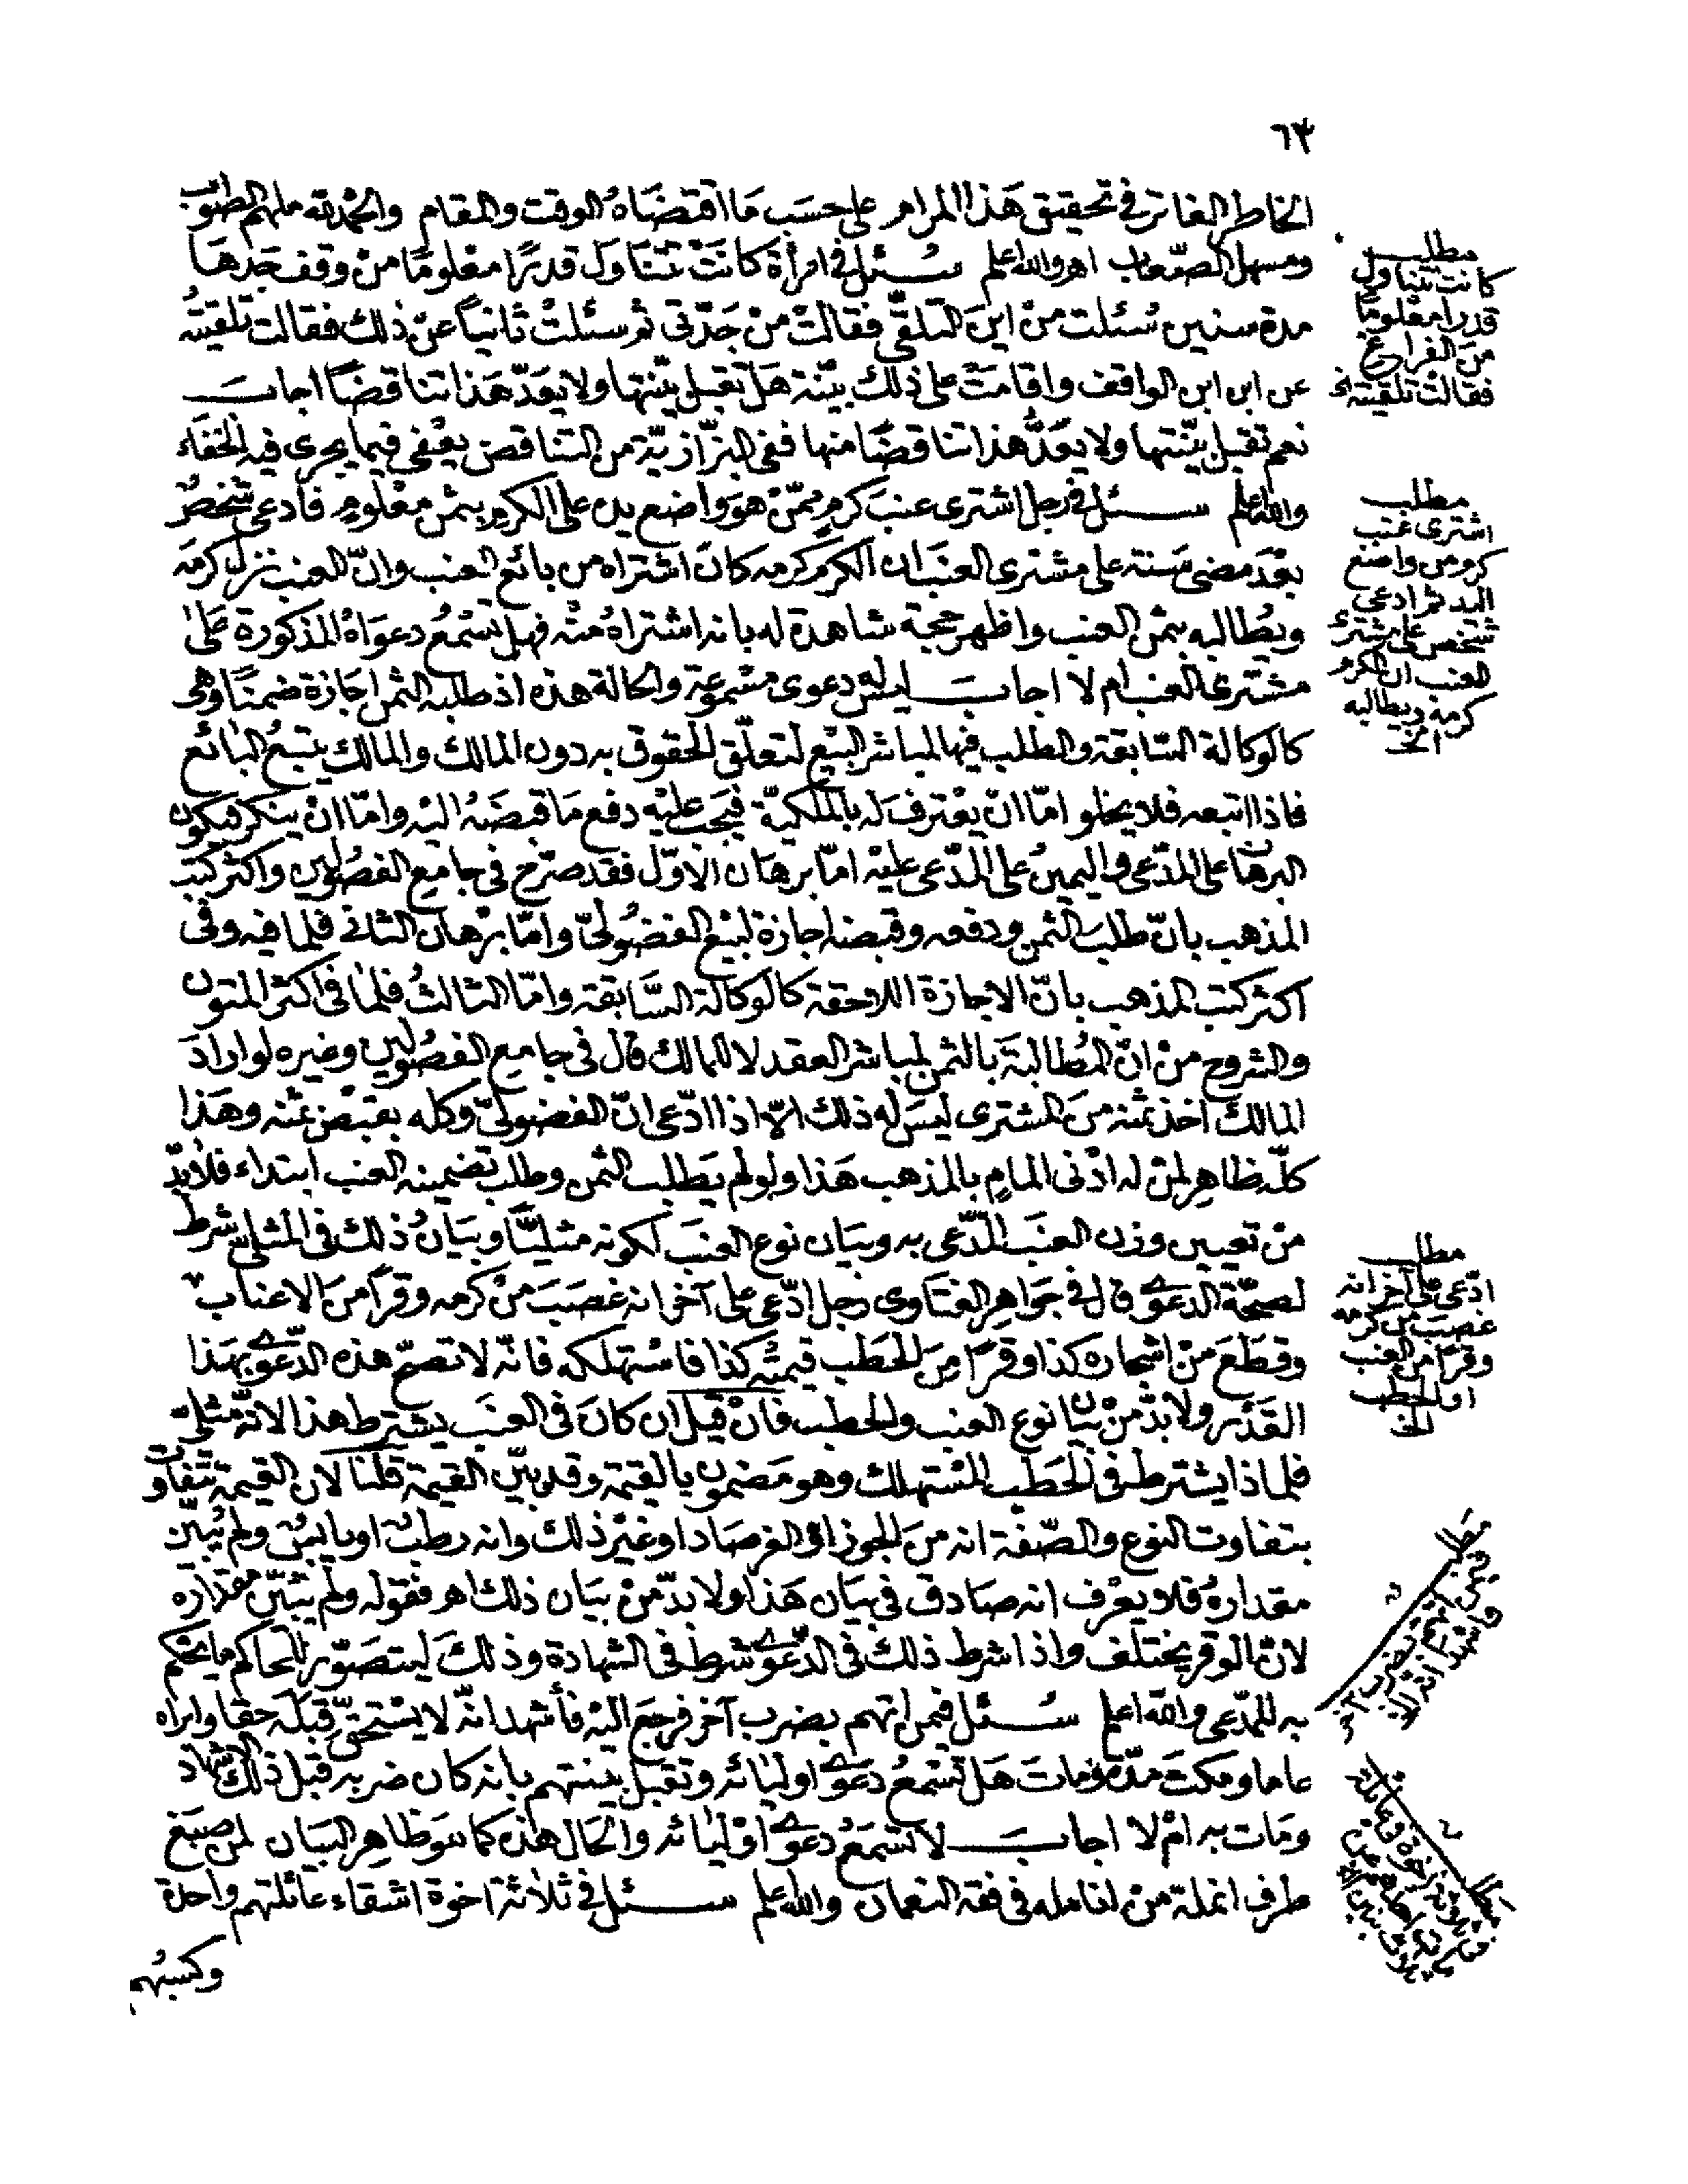 ٦٣
الخاطر الفاتر في تحقيق هَذا المرام على حسَب مَا اقتضَاهُ الوقت والمقام والحمد لله ملهم الصَّوَاب
ومسهل الصّعاب اهـ والله اعلم سُئل في امرأة كانَتْ تتنَاول قدرًا معْلومًا منْ وقف جَدهَا
مدة سنين سُئلت منْ ايْنَ التلقّي فقالتْ منْ جَدّتي ثم سئلتْ ثانياً عنْ ذلك فقالت تلقيتُه
عن ابن ابن الواقف واقامَتْ على ذلك بيّنة هَلْ تقبل بيّنتها ولا يعَدّ هَذا تناقضًا اجاب
نعم تقبل بيّنتها ولا يعَدُّ هذا تناقضًا منها ففي البزّازيّة من التناقض يعْفى فيما يجرى فيه الخفَاء
والله اعلم سئل في رجل اشترى عنبَ كرمٍ ممّنْ هوَ واضع يده على الكرم بثمن معْلومٍ فادعى شخصٌ
بعْدَ مضى سَنة على مشترى العنَب ان الكرم كرمه كانَ اشتراه من بائع العنب وانّ العنب نزل كرمَه
ويُطالبه بثمن العنب واظهر حجة شاهدة له بانه اشتراهُ منْه فهل تسْمعُ دعوَاهُ المذكورة عَلى
مشترى العنب ام لا اجابَ ليسَ له دعوى مسْموعة والحالة هذه اذ طلبه الثمن اجَازة ضمنًا وهي
كالوكالة السّابقة والطلب فيها لمباشر البيْع لتعلّق الحقوق به دون المالك والمالك يتبعُ البائع
فاذا اتبعه فلا يخلو امّا انْ يعْترفَ له بالملكيّة فيَجب عليْه دفع مَا قبضَهُ اليْه وامّا انْ ينكر فيكون
البرهان على المدّعى واليمينُ على المدّعى عليْه امّا برهَان الاوّل فقد صرّح في جامع الفصُولين واكثر كتب
المذهب بانّ طلبَ الثمن ودفعه وقبضه اجازة لبيْع الفضُوليّ وامّا برْهان الثاني فلما فيه وفي
اكثر كتب المذهب بانّ الاجازة اللاحقة كالوكالة السَّابقة وامّا الثالثُ فلمَا في اكثر المتون
والشروح منْ انّ المُطالبَة بالثمن لمباشر العقد لا للمالك قال في جامع الفصُولين وغيره لو ارادَ
المالكُ اخذ ثمنه منَ المشترى ليسَ له ذلك الاّ اذا ادّعى انّ الفضوليّ وكله بقبْض ثمنه وهَذا
كلّه ظاهِر لمنْ له ادْنى المامٍ بالمذهب هَذا ولو لم يَطلب الثمن وطلب تضْمينه العنب ابتداء فلا بدّ
منْ تعيين وزن العنَب المدّعى به وبيَان نوع العنَب لكونه مثليًّا وبيَانُ ذلك في المثلى شرط
لصحّة الدعوى قال في جوَاهِر الفتَاوى رجل ادّعى على آخر انه غصَبَ منْ كرمه وقرًا منَ الاعناب
وقطعَ منْ اشجاره كذا وقرًا منَ الحَطب قيمتُه كذا فاسْتهلكه فانّه لا تصحّ هذه الدّعْوى بهَذا
القدْر ولا بدّ منْ بيَان نوع العنب والحطب فانْ قيل ان كانَ في العنَب يشترط هذا لانّه مثلىّ
فلماذا يشترط في الحَطب المسْتهلك وهو مَضمون بالقيمة وقد بيّن القيمة قلنا لان القيمة تتفاوت
بتفاوت النوع والصّفة انه منَ الجوز او الفرصَاد او غيْر ذلك وانه رطبٌ او يابسٌ ولم يُبيّن
مقدارهُ فلا يعْرف انه صَادق في بيَان هَذا ولا بدّ منْ بيَان ذلك اهـ فقوله ولم يبيّن مقدَاره
لانّ الوقر يختلف واذا شرط ذلك في الدّعْوى شرط في الشهادة وذلكَ ليتصَوّر للحَاكم ما يحكم
به للمدّعى والله اعلم سُئل فيمن اتهم بضرب آخر فرجعَ اليْه فأشهد انّه لا يسْتحقّ قبَلهُ حقا وابراه
عاما ومكثَ مدّة ومات هَلْ تسْمعُ دَعوى اوليَائه وتقبل بيّنتهم بانه كان ضربه قبل ذلك الاشهاد
ومَات به امْ لا اجابَ لا تسْمَعُ دعْوى اوْليَائه والحَال هذه كما هو ظاهِر البيَان لمن صبَغ
طرف انملة منْ انامله في فقه النعمان والله اعلم سئل في ثلاثة اخوة اشقاء عائلتهم واحدة
وكسبهم
مطلب
كانت تتناول
قدرا معْلومًا
منَ الفراغ
فقالتْ تلقيته الخ
مطلب
اشترى عنب
كرم من واضع
اليد ثم ادعى
شخص على مشترى
العنب ان الكرم
كرمه ويطالبه
الخ
مطلب
ادّعى على آخر انه
غصبَ من كرمه
وقرًا من العنب
او الحطب
الخ
مطلب
فيمن اتهم بضرب آخر
واشهد انه الخ
مطلب